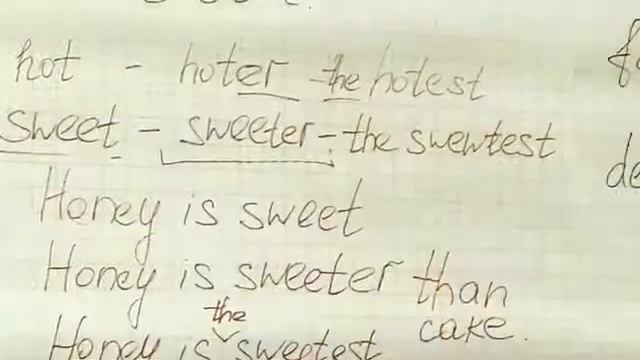 hot - hoter - the hotest
sweet - sweeter - the swewtest
Honey is sweet
Honey is sweeter than
cake.
the
Honey is sweetest
de